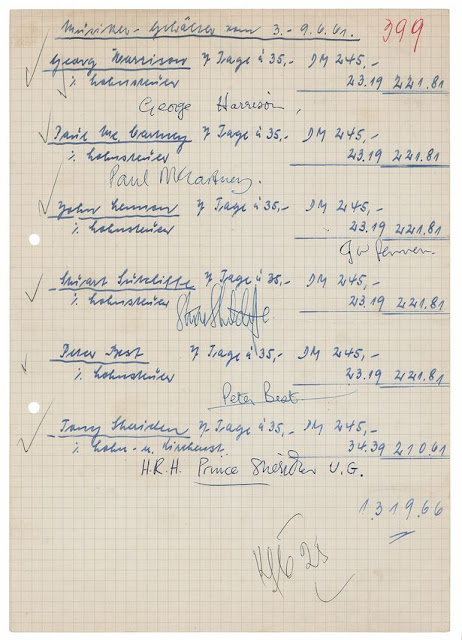 Musiker-Gehälter vom 3.-9.6.61.
399
Georg Harrison 7 Tage à 35,- DM 245,-
% Lohnsteuer 23.19 221.81
George Harrison,
Paul Mc. Cartney 7 Tage à 35,- DM 245,-
% Lohnsteuer 23.19 221.81
Paul McCartney.
John Lennon 7 Tage à 35,- DM 245,-
% Lohnsteuer 23.19 221.81
Stuart Sutcliffe 7 Tage à 35,- DM 245,-
% Lohnsteuer 23.19 221.81
Peter Best 7 Tage à 35,- DM 245,-
% Lohnsteuer 23.19 221.81
Peter Best
Tony Sheriden 7 Tage à 35,- DM 245,-
% Lohn- u. Kirchenst. 34.39 210.61
H.R.H. Prince Sheridan U.G.
1.319.66